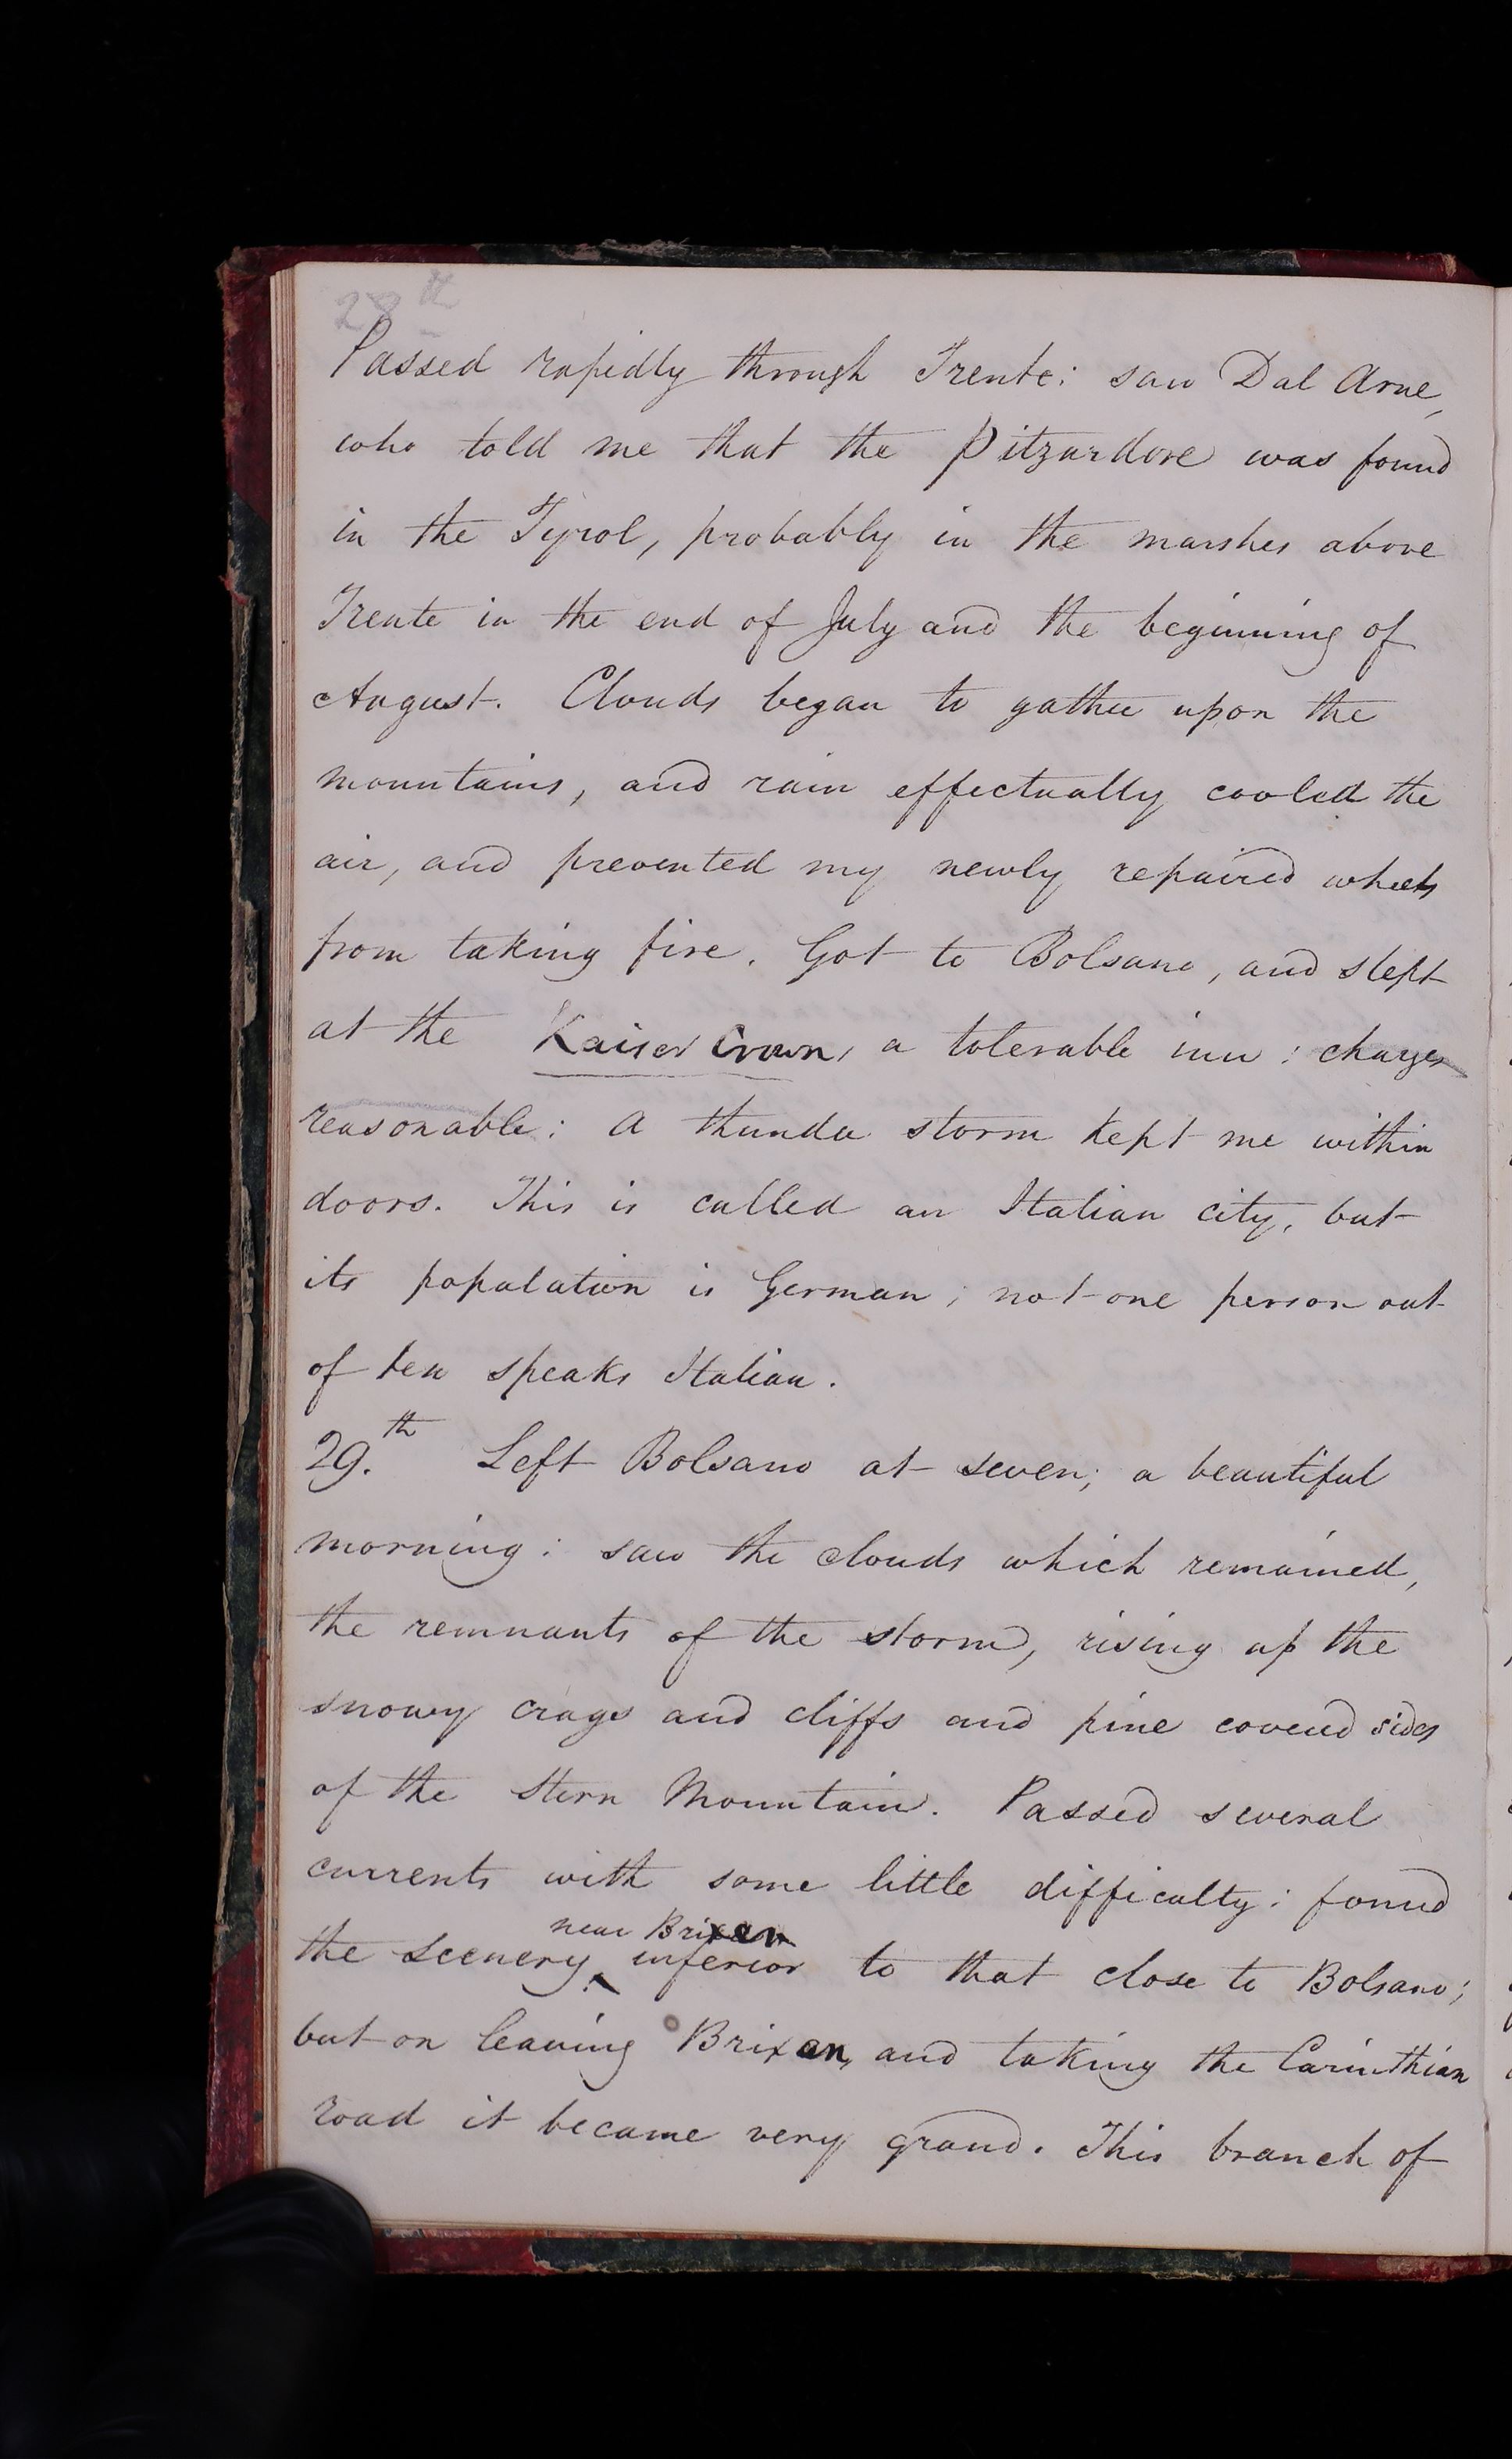 28th
Passed rapidly through Trente: saw Dal Arne,
who told me that the Pitzardore was found
in the Tyrol, probably in the marshes above
Trente in the end of July and the beginning of
August. Clouds began to gather upon the
mountains, and rain effectually cooled the
air, and prevented my newly repaired wheels
from taking fire. Got to Bolsano, and slept
at the Kaiser Crown, a tolerable inn: charges
reasonable: a thunder storm kept me within
doors. This is called an Italian city, but
its population is German; not one person out
of ten speaks Italian.
29.th Left Bolsano at seven; a beautiful
morning: saw the clouds which remained,
the remnants of the storm, rising up the
snowy crags and cliffs and pine covered sides
of the Stern Mountain. Passed several
currents with some little difficulty: found
near Brixen
the scenery inferior to that close to Bolsano;
but on leaving Brixen, and taking the Carinthian
road it became very grand. This branch of